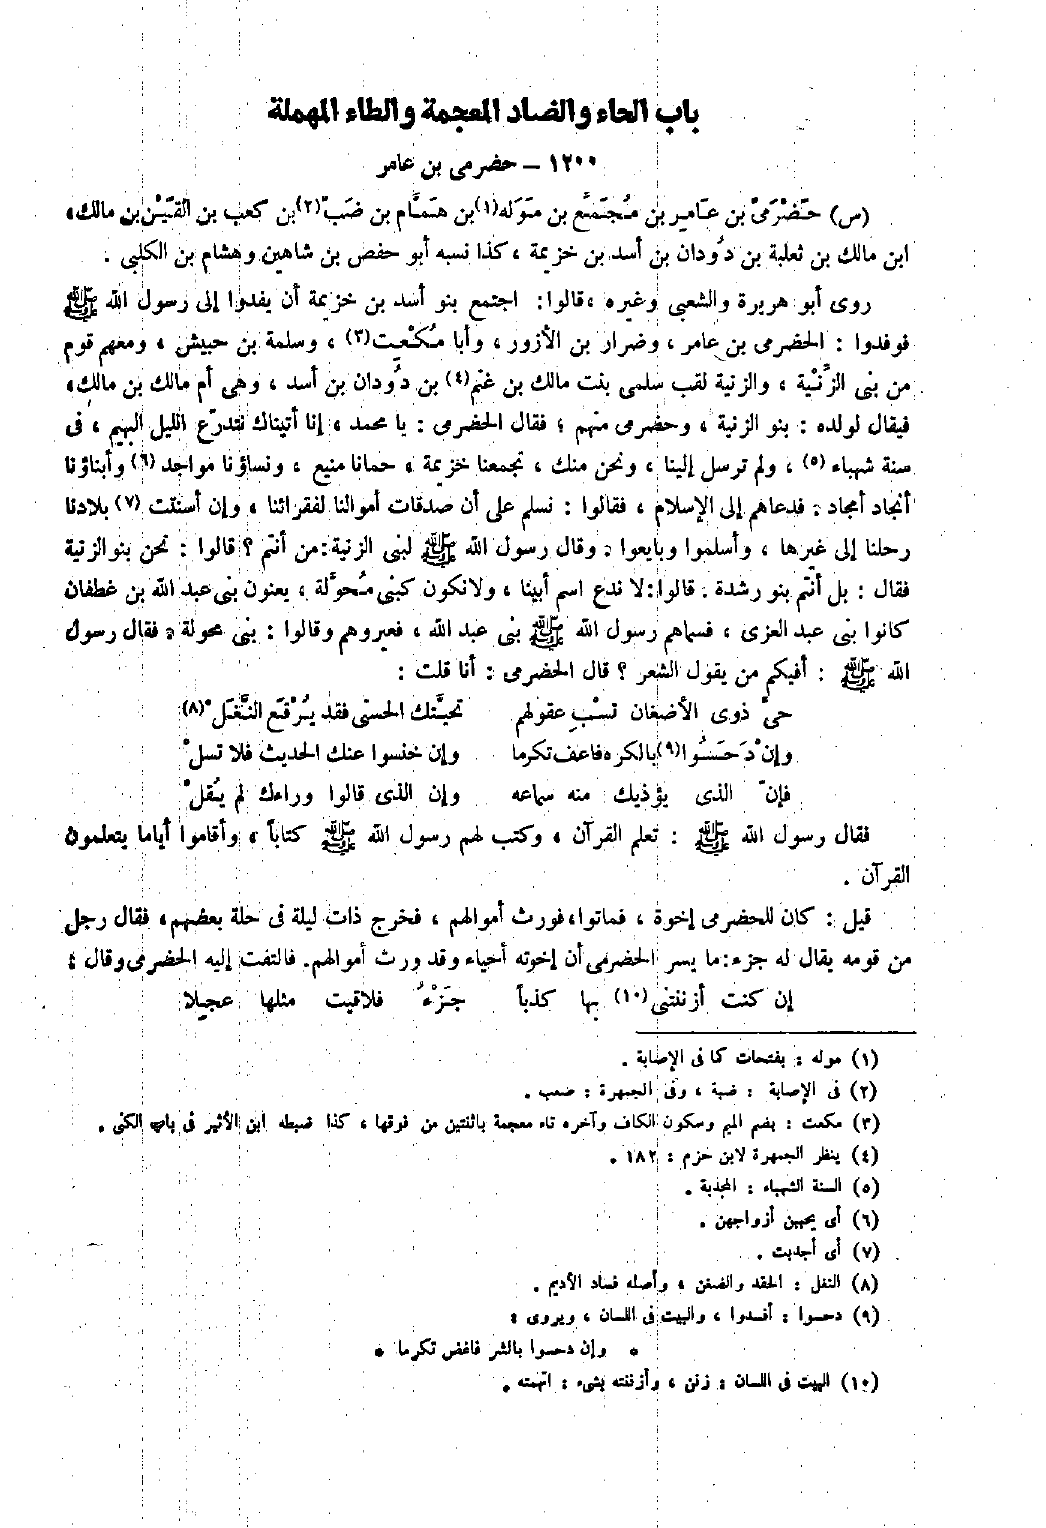 باب الحاء والضاد المعجمة والطاء المهملة
١٢٠٠ – حضرمى بن عامر
(س) حَضْرَمىّ بن عَامِر بن مُجَمِّع بن مَوَله(١) بن همَّام بن ضَبّ(٢) بن كعب بن القَيْن بن مالك،
ابن مالك بن ثعلبة بن دُودان بن أسد بن خزيمة ، كذا نسبه أبو حفص بن شاهين وهشام بن الكلبى .
روى أبو هريرة والشعبى وغيره ، قالوا: اجتمع بنو أسد بن خزيمة أن يفدوا إلى رسول الله ﷺ
فوفدوا : الحضرمى بن عامر ، وضرار بن الأزور ، وأبا مُكْعِت(٣) ، وسلمة بن حبيش ، ومعهم قوم
من بنى الزِّنْية ، والزنية لقب سلمى بنت مالك بن غنم(٤) بن دُودان بن أسد ، وهى أم مالك بن مالك،
فيقال لولده : بنو الزنية ، وحضرمى منهم ؛ فقال الحضرمى : يا محمد ، إنا أتيناك نتدرّع الليل البهيم ، فى
سنة شهباء (٥) ، ولم ترسل إلينا ، ونحن منك ، تجمعنا خزيمة ، حمانا منيع ، ونساؤنا مواجد (٦) وأبناؤنا
أنجاد أمجاد . فدعاهم إلى الإسلام ، فقالوا : نسلم على أن صدقات أموالنا لفقرائنا ، وإن أسنتت (٧) بلادنا
رحلنا إلى غيرها ، وأسلموا وبايعوا . وقال رسول الله ﷺ لبنى الزنية : من أنتم ؟ قالوا : نحن بنو الزنية
فقال : بل أنتم بنو رشدة . قالوا : لا ندع اسم أبينا ، ولا نكون كبنى مُحوَّلة ، يعنون بنى عبد الله بن غطفان
كانوا بنى عبد العزى ، فسماهم رسول الله ﷺ بنى عبد الله ، فعيروهم وقالوا : بنى محولة . فقال رسول
الله ﷺ : أفيكم من يقول الشعر ؟ قال الحضرمى : أنا قلت :
حىّ ذوى الأضغان تسْبِ عقولهم تحيتَّك الحسنى فقد يُرْقع النَّغَل ْ(٨)
وإن ْدَحَسُوا(٩) بالكره فاعف تكرما وإن خنسوا عنك الحديث فلا تسل ْ
فإنّ الذى يؤذيك منه سماعه وإن الذى قالوا وراءك لم يُقل ْ
فقال رسول الله ﷺ : تعلم القرآن ، وكتب لهم رسول الله ﷺ كتاباً ، وأقاموا أياما يتعلمون
القرآن .
قيل : كان للحضرمى إخوة ، فماتوا، فورث أموالهم ، فخرج ذات ليلة فى حلة بعضهم، فقال رجل
من قومه يقال له جزء: ما يسر الحضرمى أن إخوته أحياء وقد ورث أموالهم. فالتفت إليه الحضرمى وقال :
إن كنت أزننتنى(١٠) بها كذباً جَزْءُ فلاقيت مثلها عجِلا
(١) موله : بفتحات كما فى الإصابة .
(٢) فى الإصابة : ضبة ، وفى الجمهرة : صعب .
(٣) مكعت : بضم الميم وسكون الكاف وآخره تاء معجمة باثنتين من فوقها ، كذا ضبطه ابن الأثير فى باب الكنى .
(٤) ينظر الجمهرة لابن حزم : ١٨٢ .
(٥) السنة الشهباء : المجدبة .
(٦) أى يحببن أزواجهن .
(٧) أى أجدبت .
(٨) النغل : الحقد والضغن ، وأصله فساد الأديم .
(٩) دحسوا : أفسدوا ، والبيت فى اللسان ، ويروى :
* وإن دحسوا بالشر فاغض تكرما *
(١٠) البيت فى اللسان : زنن ، وأزننته بشىء : اتهمته .